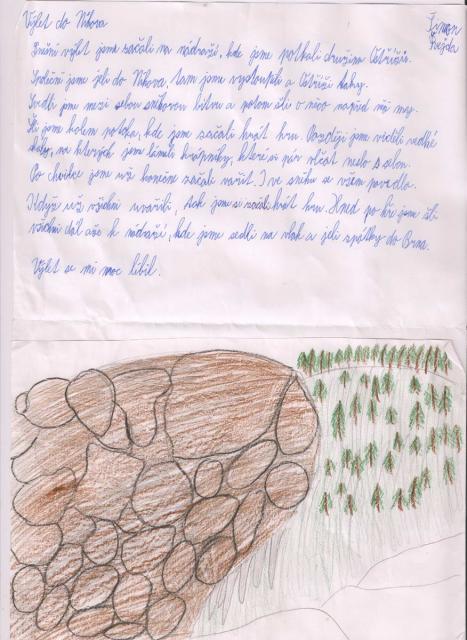 Výlet do Níhova
Šimon
Krejča
Dnešní výlet jsme začali na nádraží, kde jsme potkali družinu Ostřížů.
Společně jsme jeli do Níhova, tam jsme vystoupili a Ostříži taky.
Svedli jsme mezi sebou sněhovou bitvu a potom šli o něco napřed než my.
Šli jsme kolem potoka, kde jsme začali hrát hru. Později jsme viděli veliké
skály, na kterých jsme lámali krápníky, které si pár vlčat neslo s sebou.
Po chvilce jsme už konečně začali vařit. I ve sněhu se všem povedlo.
Když už všichni uvařili, tak jsme si začali hrát hru. Hned po hře jsme šli
všichni dál až k nádraží, kde jsme sedli na vlak a jeli zpátky do Brna.
Výlet se mi moc líbil.